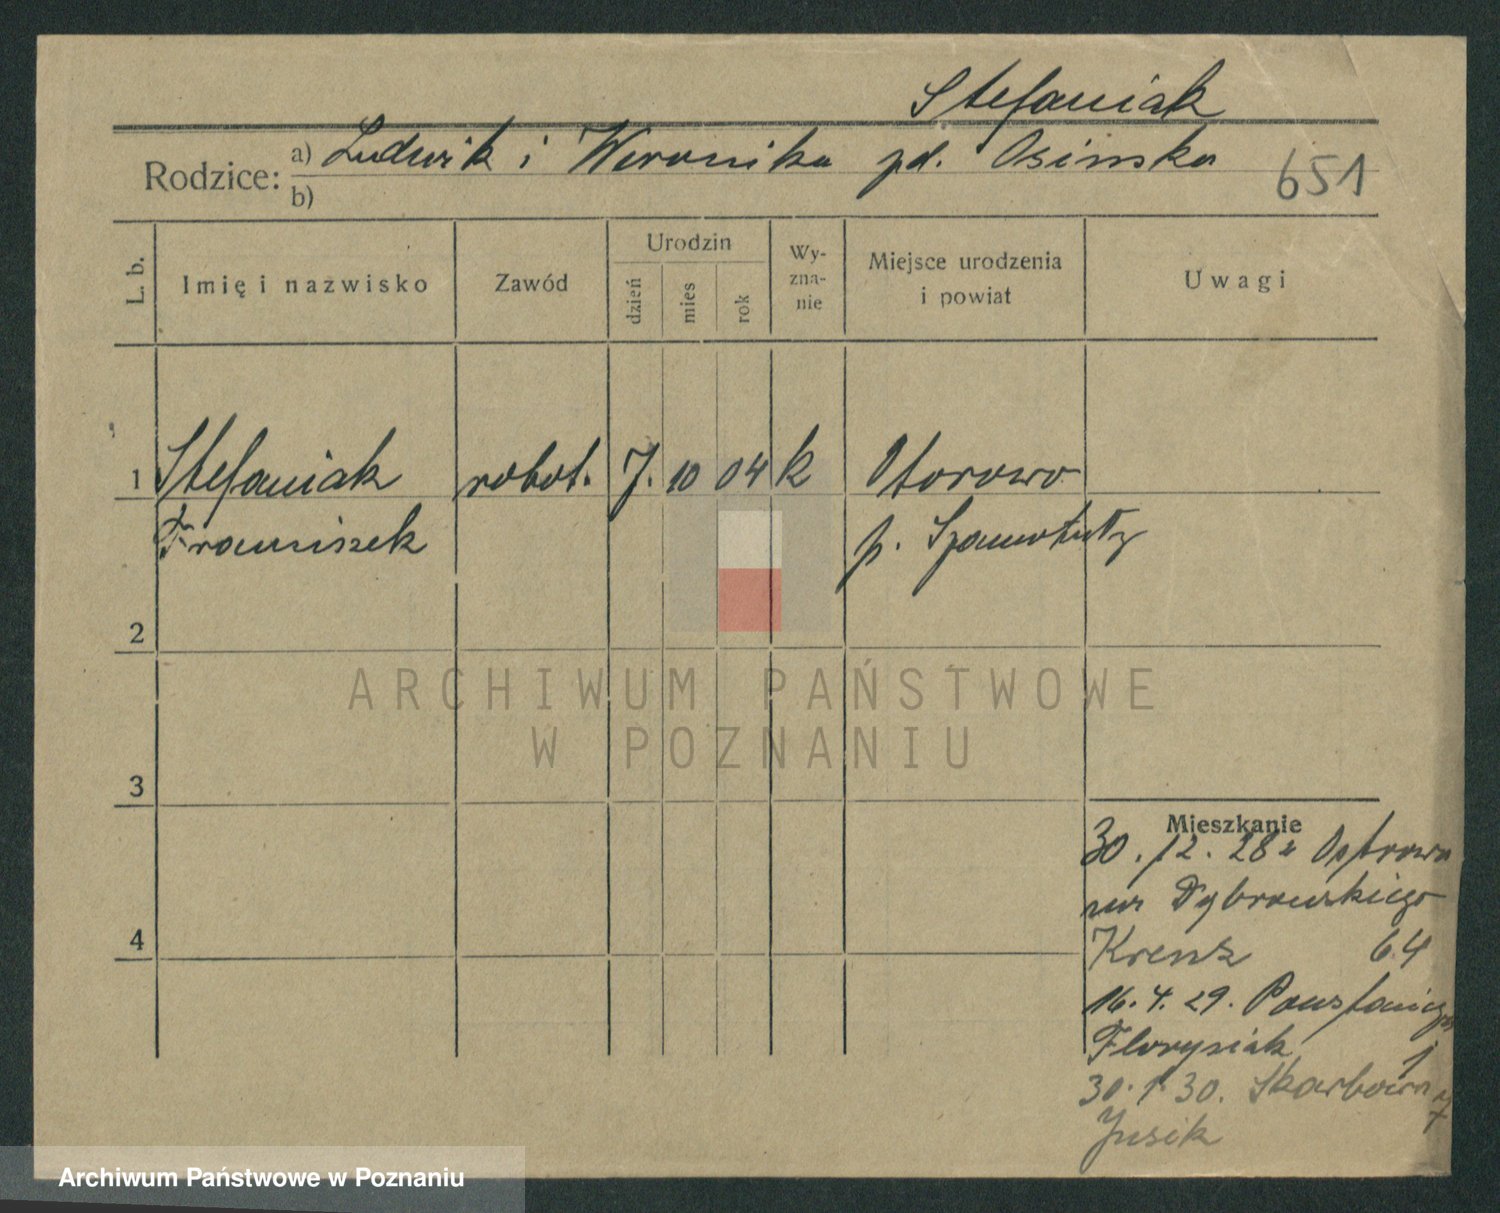 Stefaniak
Rodzice: a) Ludwik i Weronika zd. Osinska
b)
651
L. b.
Imię i nazwisko
Zawód
Urodzin
dzień
mies
rok
Wy-
zna-
nie
Miejsce urodzenia
i powiat
Uwagi
1 Stefaniak robot. 7. 10 04 k Otorowo
Franciszek p. Szamotuły
2
3
4
Mieszkanie
30. 12. 28 z Ostrowa
na Dąbrowskiego
Krenz 64
16. 4. 29. Powstańcza
Florysiak 1
30. 1. 30. Skarbowa
Jusik
ARCHIWUM PAŃSTWOWE
W POZNANIU
Archiwum Państwowe w Poznaniu